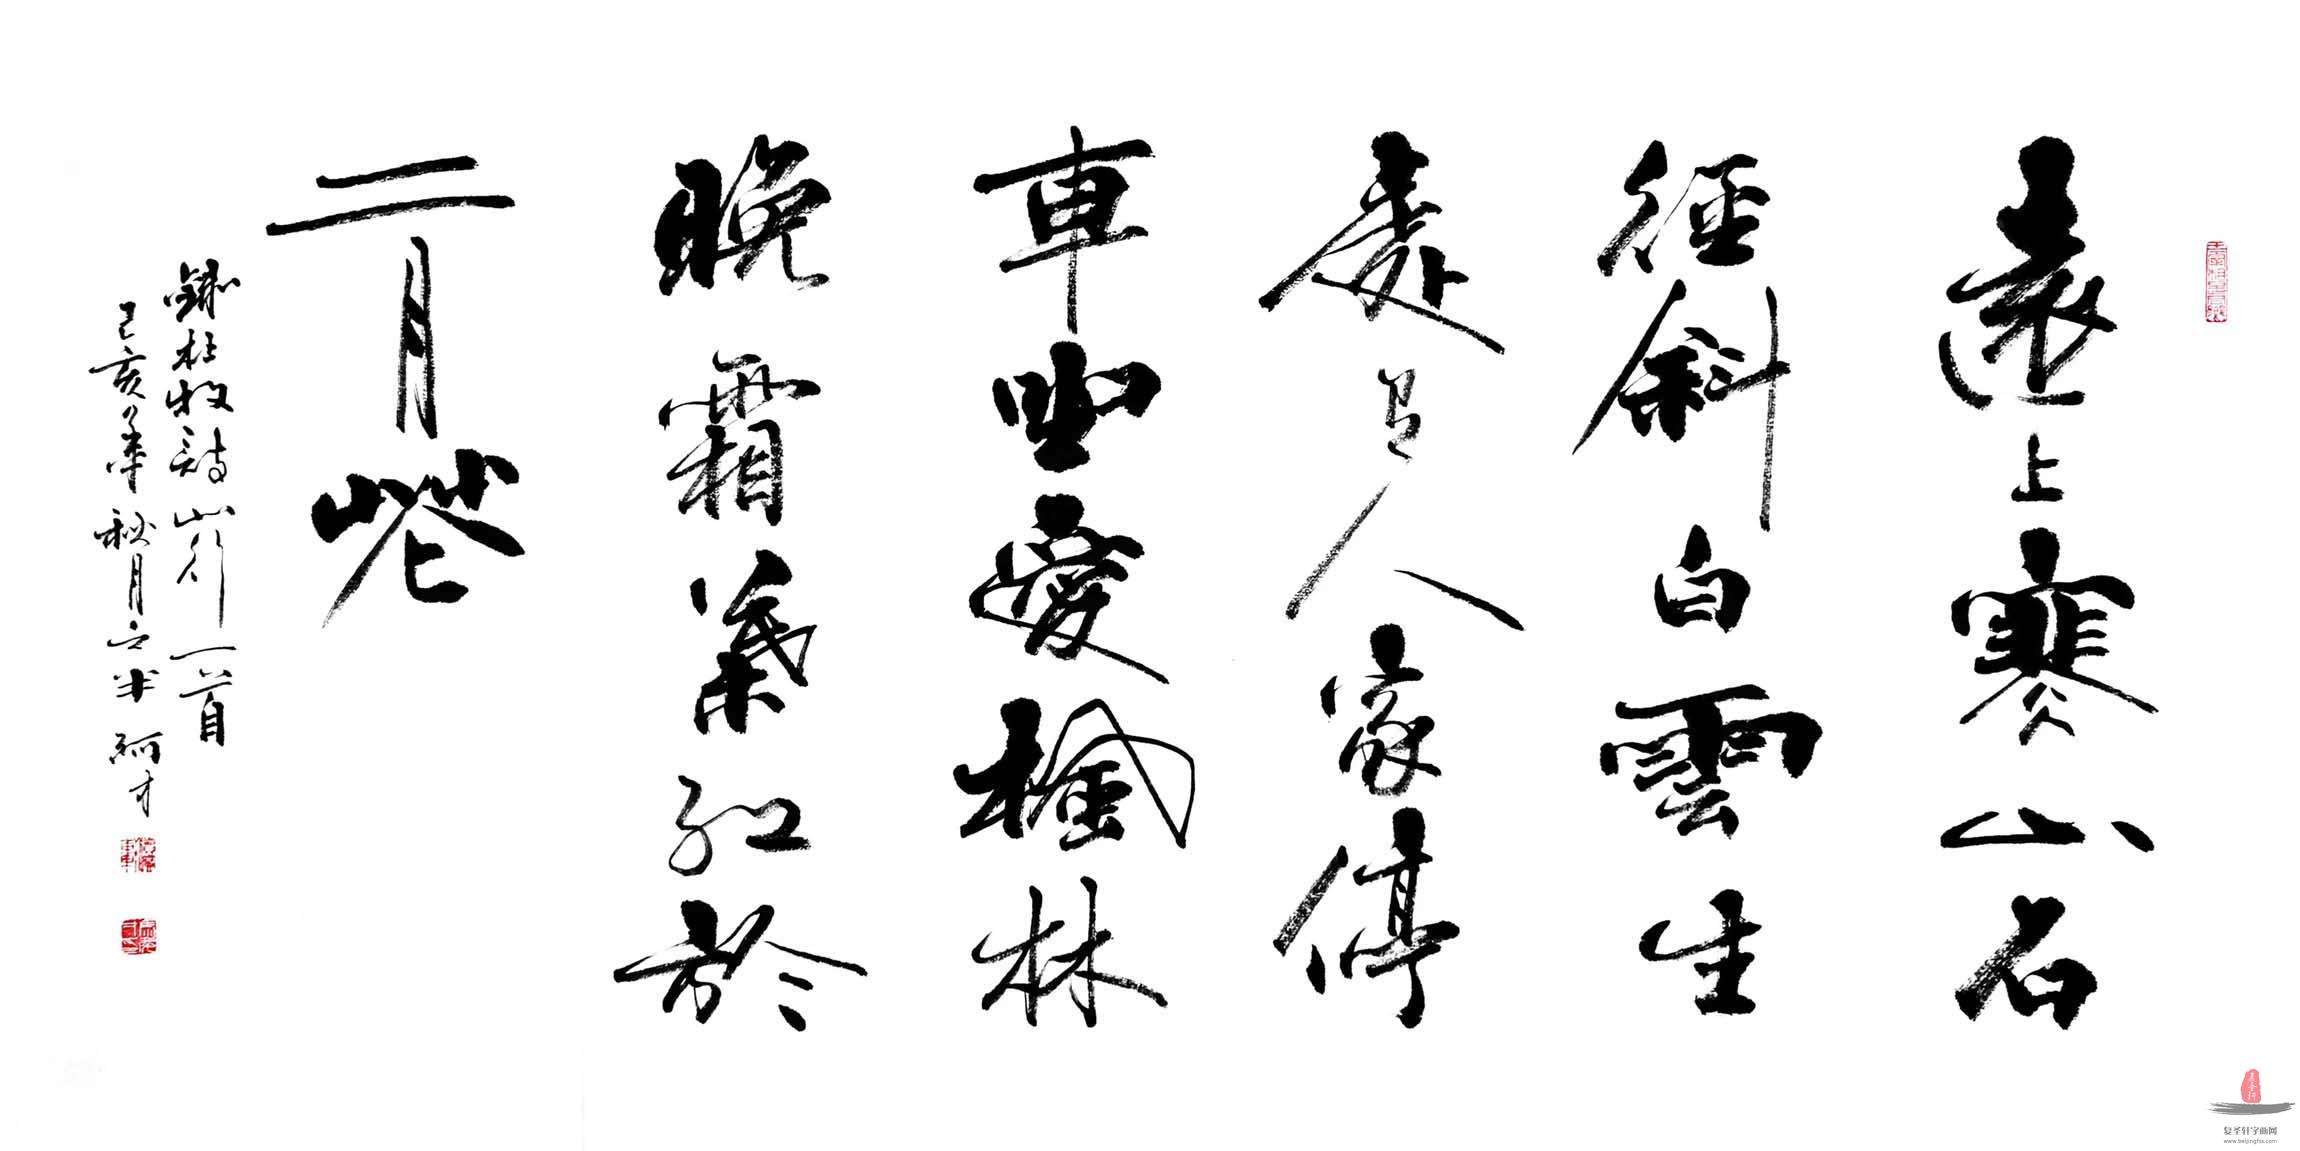 遠上寒山石
徑斜白雲生
處有人家停
車坐愛楓林
晚霜葉紅於
二月花
錄杜牧詩山行一首
己亥年秋月之半
复圣轩字画网
www.beijingfsx.com